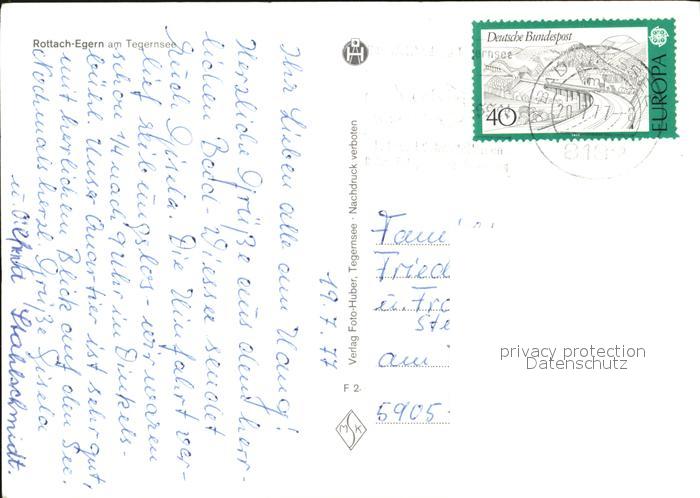 Rottach-Egern am Tegernsee
Ihr Lieben alle am Hang!
Herzliche Grüße aus dem herr-
lichen Bad-Wiessee sendet
Euch Gisela. Die Hinfahrt ver-
lief reibungslos - wir waren
schon 1/4 nach 9 Uhr in Dinkels-
bühl. Unser Quartier ist sehr gut,
mit herrlichem Blick auf den See.
Nochmals herzl. Grüße Gisela
u. Stahlschmidt.
19.7.77
Verlag Foto-Huber, Tegernsee · Nachdruck verboten
F 2
MSK
Deutsche Bundespost
40
EUROPA
Fami
Fried
u. Fra
Ste
am
5905
privacy protection
Datenschutz